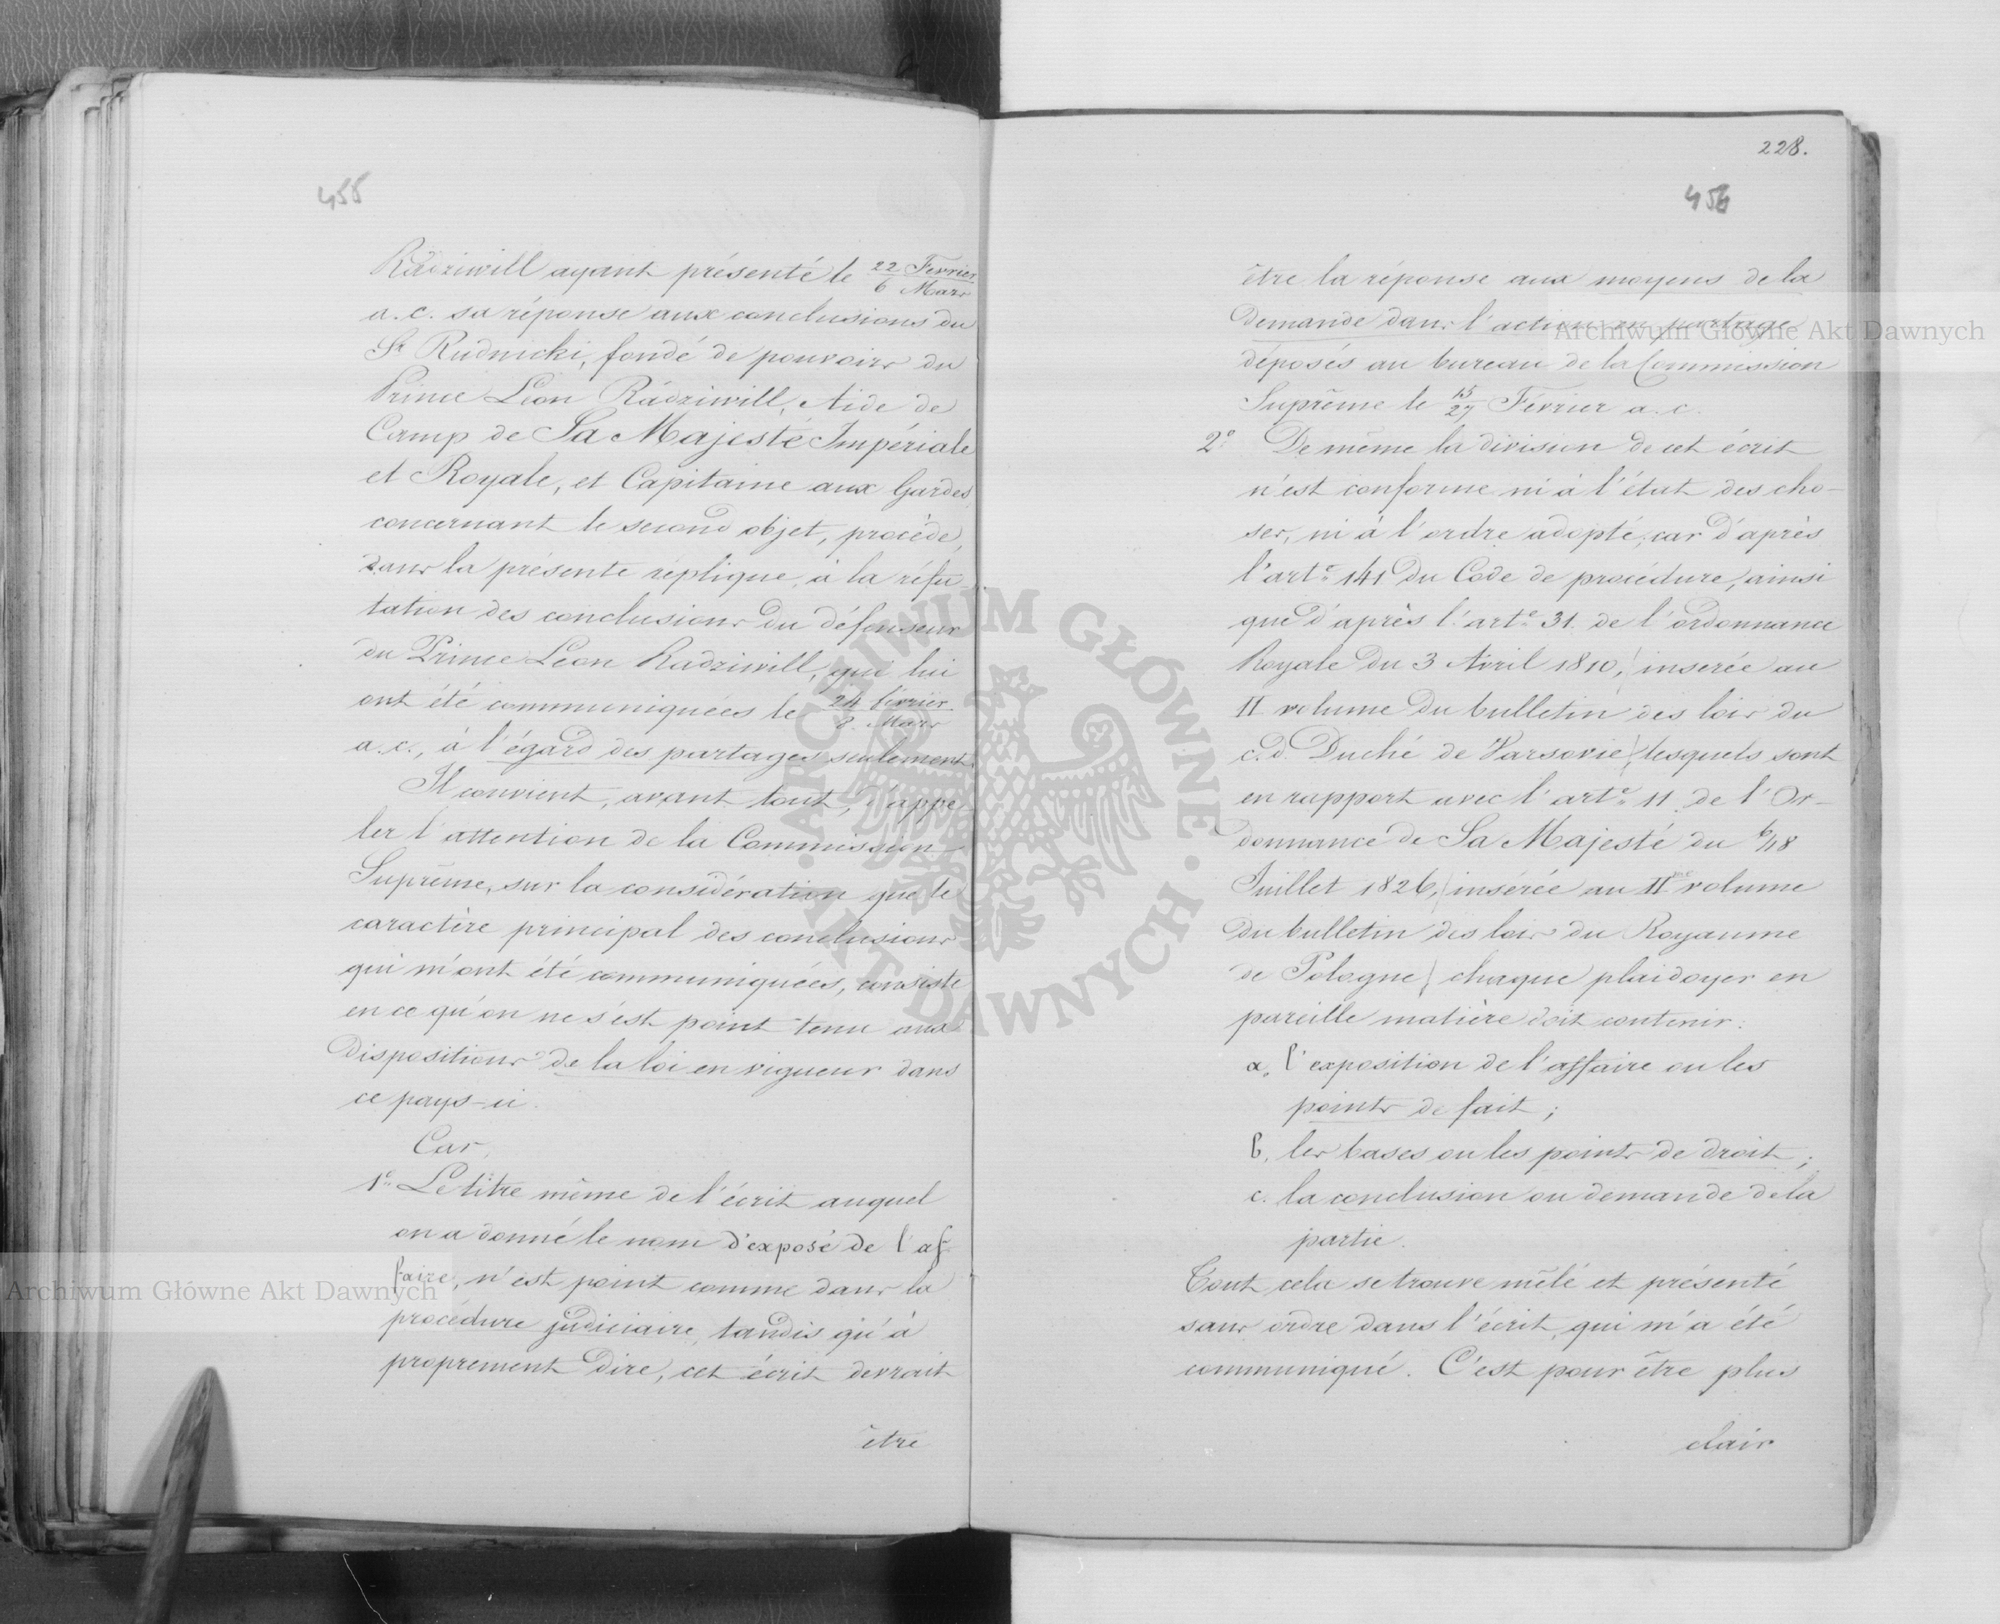 455
Radziwill ayant présenté le 22 Fevrier / 6 Mars
a. c. sa réponse aux conclusions du
Sr Rudnicki, fondé de pouvoirs du
Prince Léon Radziwill, Aide de
Camp de Sa Majesté Impériale
et Royale, et Capitaine aux Gardes
concernant le second objet, procède,
dans la présente réplique, à la réfu-
tation des conclusions du défenseur
du Prince Léon Radziwill, qui lui
ont été communiquées le 24 février / 8 Mars
a. c., à l'égard des partages seulement.
Il convient, avant tout, d'appe-
ler l'attention de la Commission
Suprême, sur la considération que le
caractère principal des conclusions
qui m'ont été communiquées, consiste
en ce qu'on ne s'est point tenu aux
dispositions de la loi en vigueur dans
ce pays-ci.
Car,
1o Le titre même de l'écrit auquel
on a donné le nom d'exposé de l'af-
faire, n'est point comme dans la
procédure judiciaire, tandis qu'à
proprement dire, cet écrit devrait
être
228.
456
être la réponse aux moyens de la
demande dans l'action en partage
déposés au bureau de la Commission
Suprême le 15/27 Février a. c.
2o De même la division de cet écrit
n'est conforme ni à l'état des cho-
ses, ni à l'ordre adopté, car d'après
l'arte 141 du Code de procédure, ainsi
que d'après l'arte 31. de l'ordonnance
Royale du 3 Avril 1810, (inserée au
II volume du bulletin des lois du
c. d. Duché de Varsovie) lesquels sont
en rapport avec l'arte 11 de l'Or-
donnance de Sa Majesté du 6/18
Juillet 1826, (insérée au IIme volume
du bulletin des lois du Royaume
de Pologne) chaque plaidoyer en
pareille matière doit contenir:
a, l'exposition de l'affaire ou les
points de fait;
b, les bases ou les points de droit;
c. la conclusion ou demande de la
partie.
Tout cela se trouve mêlé et présenté
sans ordre dans l'écrit qui m'a été
communiqué. C'est pour être plus
clair
ARCHIWUM GŁÓWNE · AKT DAWNYCH ·
Archiwum Główne Akt Dawnych
Archiwum Główne Akt Dawnych